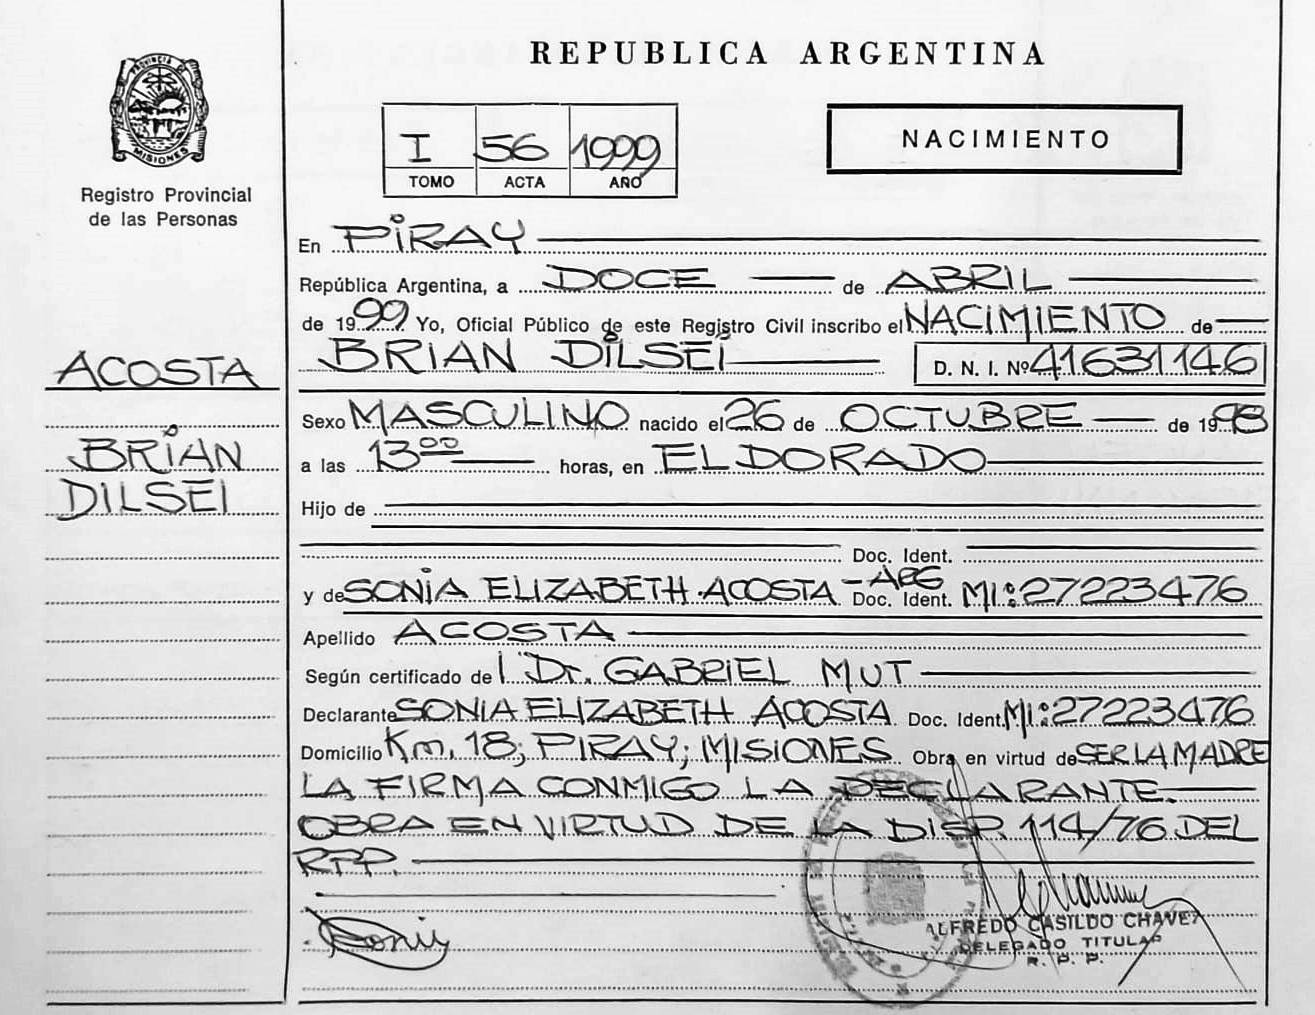 REPUBLICA ARGENTINA
PROVINCIA
MISIONES
Registro Provincial
de las Personas
I 56 1999
TOMO ACTA AÑO
NACIMIENTO
En PIRAY
República Argentina, a DOCE de ABRIL
de 1999 Yo, Oficial Público de este Registro Civil inscribo el NACIMIENTO de
BRIAN DILSEI D. N. I. Nº 41631146
ACOSTA
BRIAN
DILSEI
Sexo MASCULINO nacido el 26 de OCTUBRE de 1998
a las 13 00 horas, en ELDORADO
Hijo de
Doc. Ident.
y de SONIA ELIZABETH ACOSTA - ARG Doc. Ident. MI: 27223476
Apellido ACOSTA
Según certificado de l Dr. GABRIEL MUT
Declarante SONIA ELIZABETH ACOSTA Doc. Ident. MI: 27223476
Domicilio Km. 18; PIRAY; MISIONES Obra en virtud de SER LA MADRE
LA FIRMA CONMIGO LA DECLARANTE.
OBRA EN VIRTUD DE LA DISP. 114/76 DEL
RPP.
Sonia
ALFREDO CASILDO CHAVEZ
DELEGADO TITULAR
R. P. P.